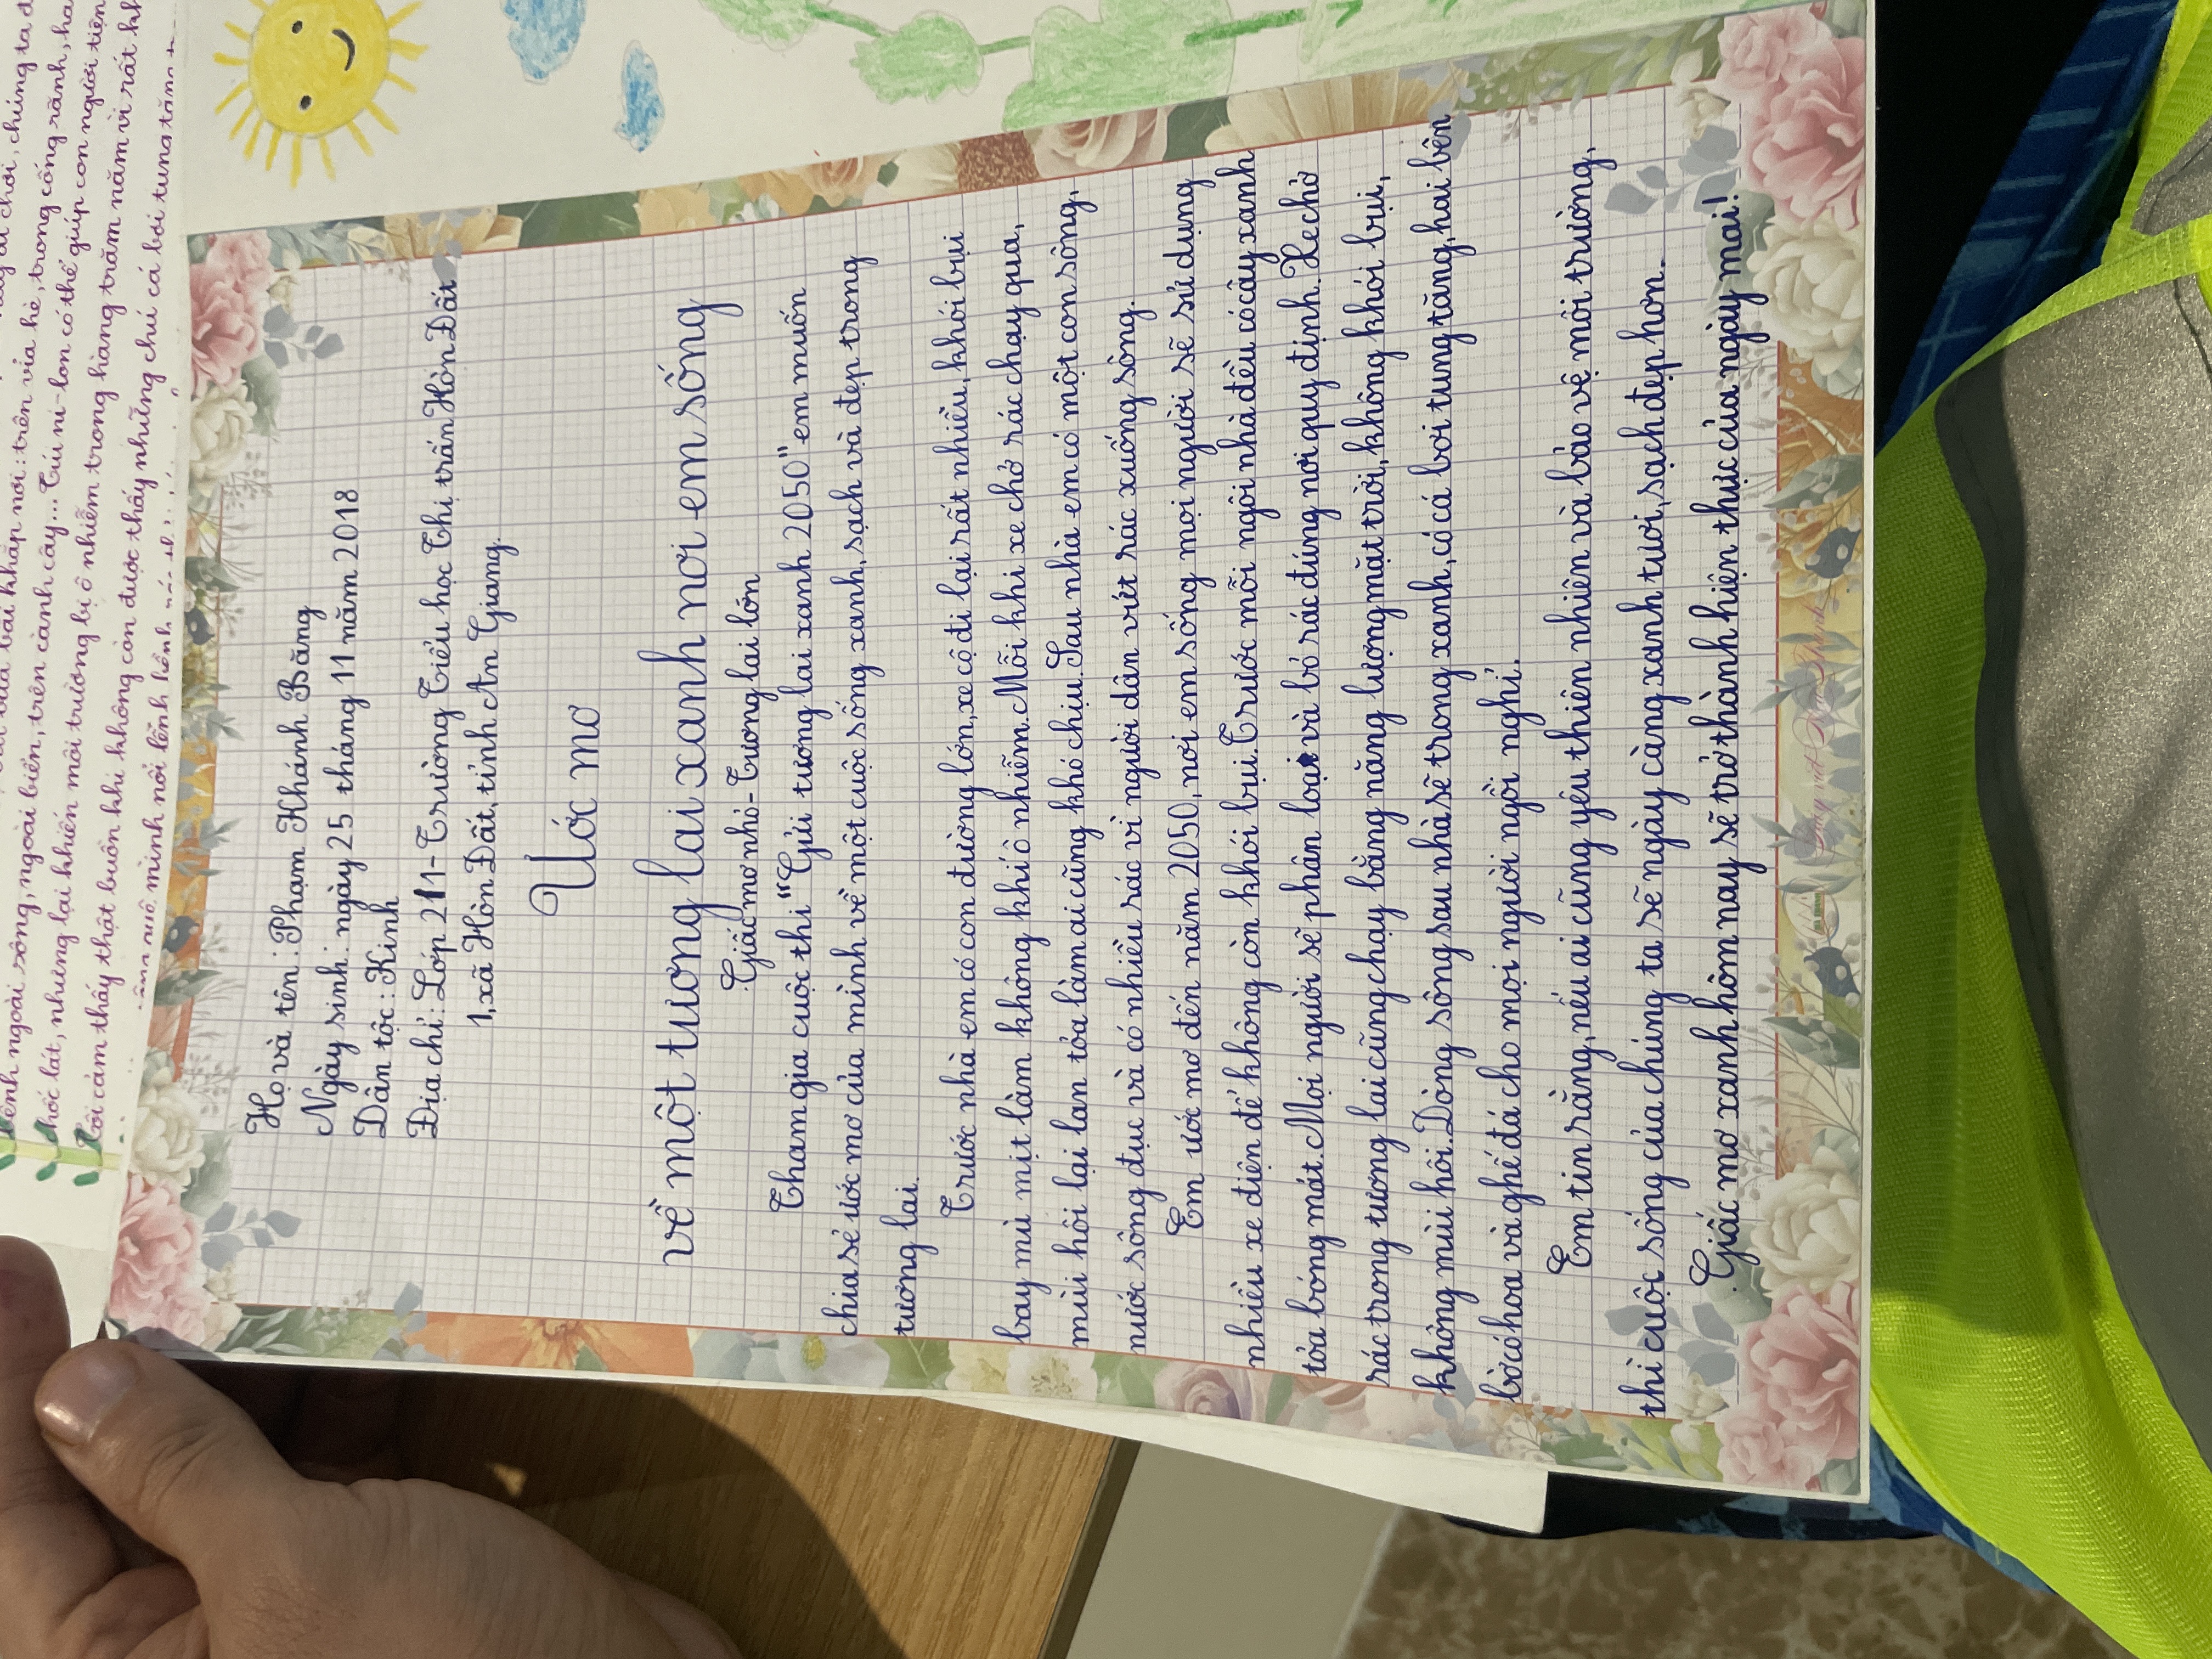 ênh ngoài sông, ngoài biển, trên cành cây... Túi ni-lon có thể giúp con người tiện
chốc lát, nhưng lại khiến môi trường bị ô nhiễm trong hàng trăm năm vì rất kh
Tôi cảm thấy thật buồn khi không còn được thấy những chú cá bơi tung tăng
mình nổi lềnh bềnh
Họ và tên: Phạm Khánh Băng
Ngày sinh: ngày 25 tháng 11 năm 2018
Dân tộc: Kinh
Địa chỉ: Lớp 2/1 - Trường Tiểu học Thị trấn Hòn Đất
1, xã Hòn Đất, tỉnh An Giang.
Ước mơ
về một tương lai xanh nơi em sống
Giấc mơ nhỏ - Tương lai lớn
Tham gia cuộc thi "Gửi tương lai xanh 2050" em muốn
chia sẻ ước mơ của mình về một cuộc sống xanh, sạch và đẹp trong
tương lai.
Trước nhà em có con đường lớn, xe cộ đi lại rất nhiều, khói bụi
bay mù mịt làm không khí ô nhiễm. Mỗi khi xe chở rác chạy qua,
mùi hôi lại lan tỏa làm ai cũng khó chịu. Sau nhà em có một con sông,
nước sông đục và có nhiều rác vì người dân vứt rác xuống sông.
Em ước mơ đến năm 2050, nơi em sống mọi người sẽ sử dụng
nhiều xe điện để không còn khói bụi. Trước mỗi ngôi nhà đều có cây xanh
tỏa bóng mát. Mọi người sẽ phân loại và bỏ rác đúng nơi quy định. Xe chở
rác trong tương lai cũng chạy bằng năng lượng mặt trời, không khói bụi,
không mùi hôi. Dòng sông sau nhà sẽ trong xanh, có cá bơi tung tăng, hai bên
bờ có hoa và ghế đá cho mọi người ngồi nghỉ.
Em tin rằng, nếu ai cũng yêu thiên nhiên và bảo vệ môi trường,
thì cuộc sống của chúng ta sẽ ngày càng xanh tươi, sạch đẹp hơn.
Giấc mơ xanh hôm nay sẽ trở thành hiện thực của ngày mai!